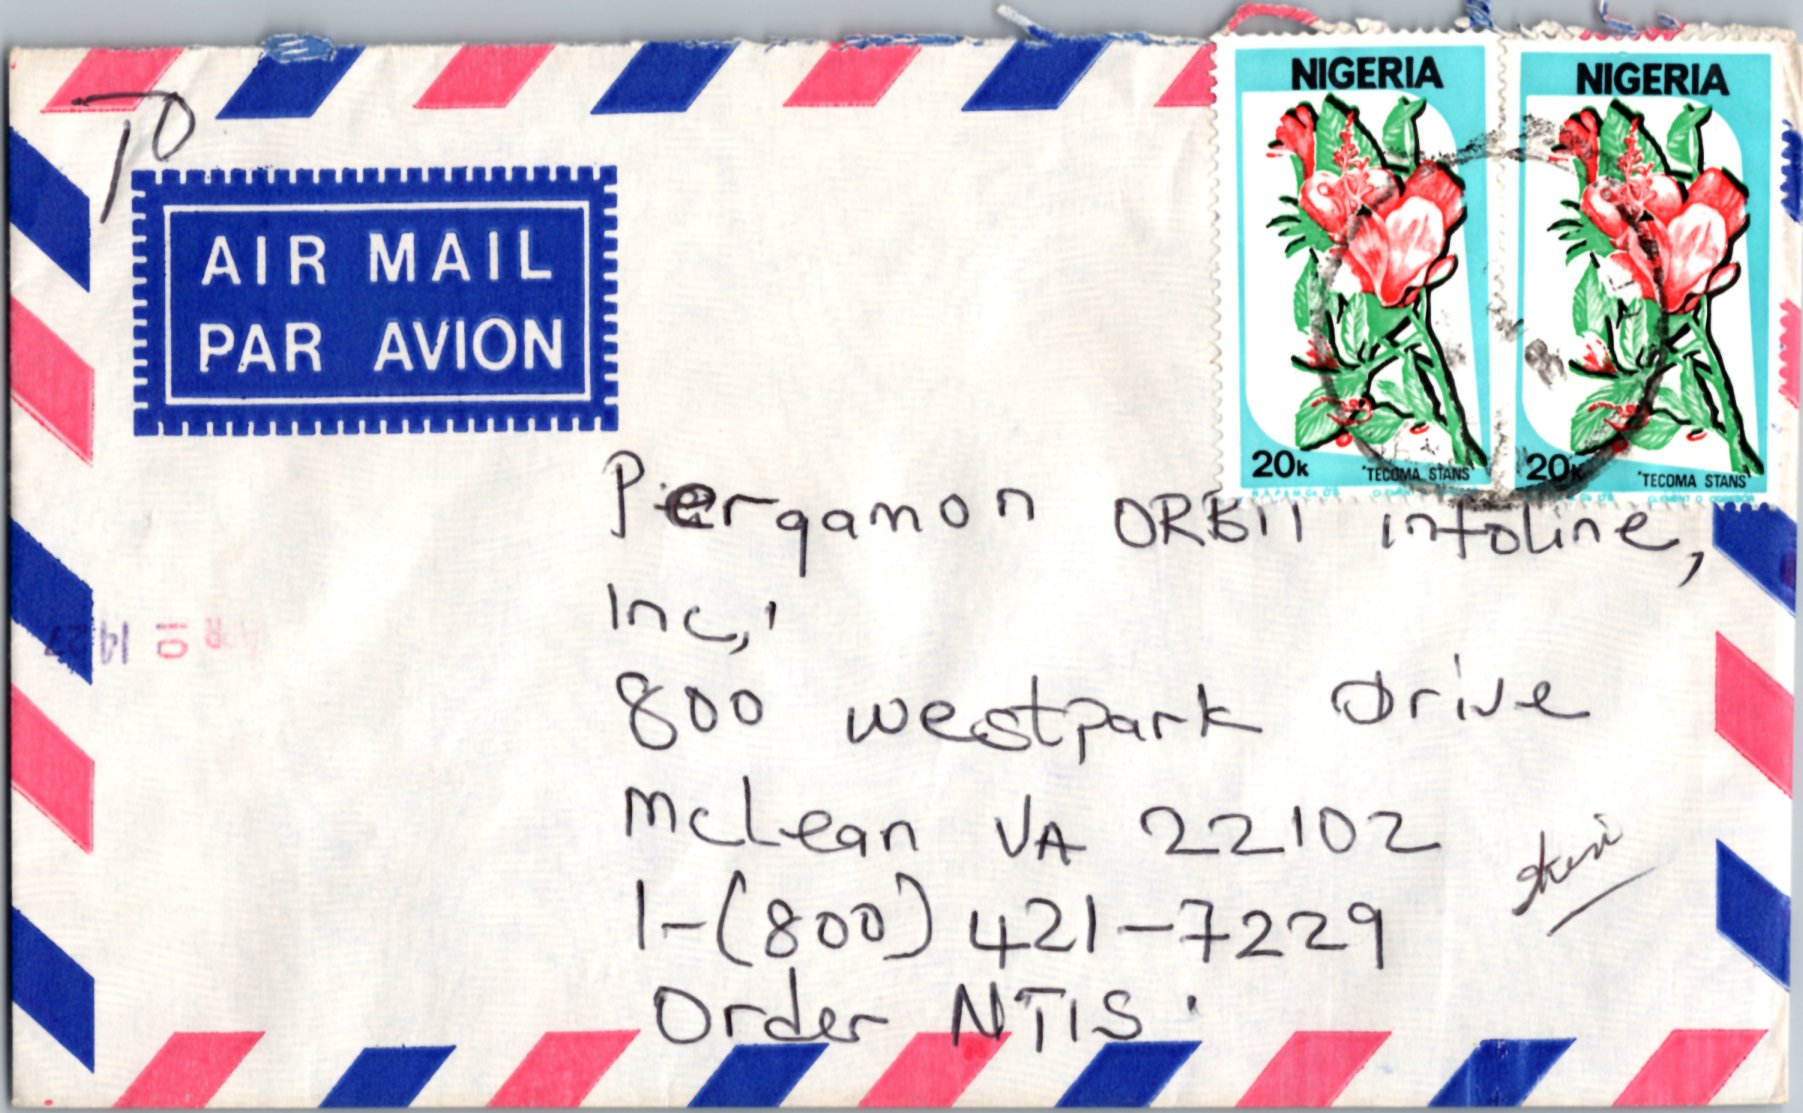 TO
AIR MAIL
PAR AVION
NIGERIA
20k
'TECOMA STANS'
NIGERIA
20k
'TECOMA STANS'
Pergamon ORBIT infoline,
Inc,'
800 westpark Drive
McLean VA 22102
1-(800) 421-7229
Order NTIS.
APR 10 14